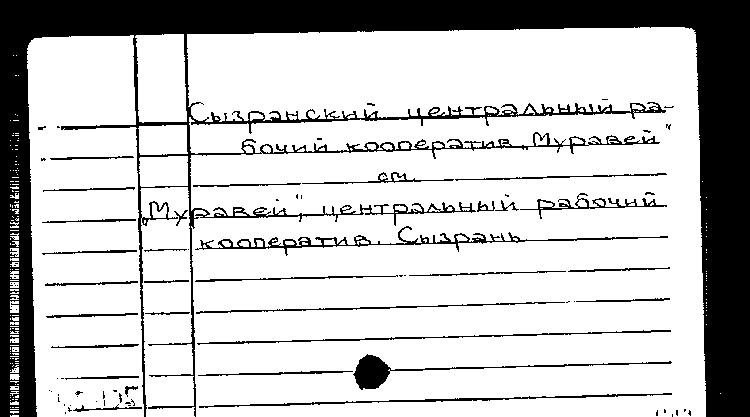 Сызранский центральный ра-
бочий кооператив „Муравей"
см.
„Муравей", центральный рабочий
кооператив. Сызрань